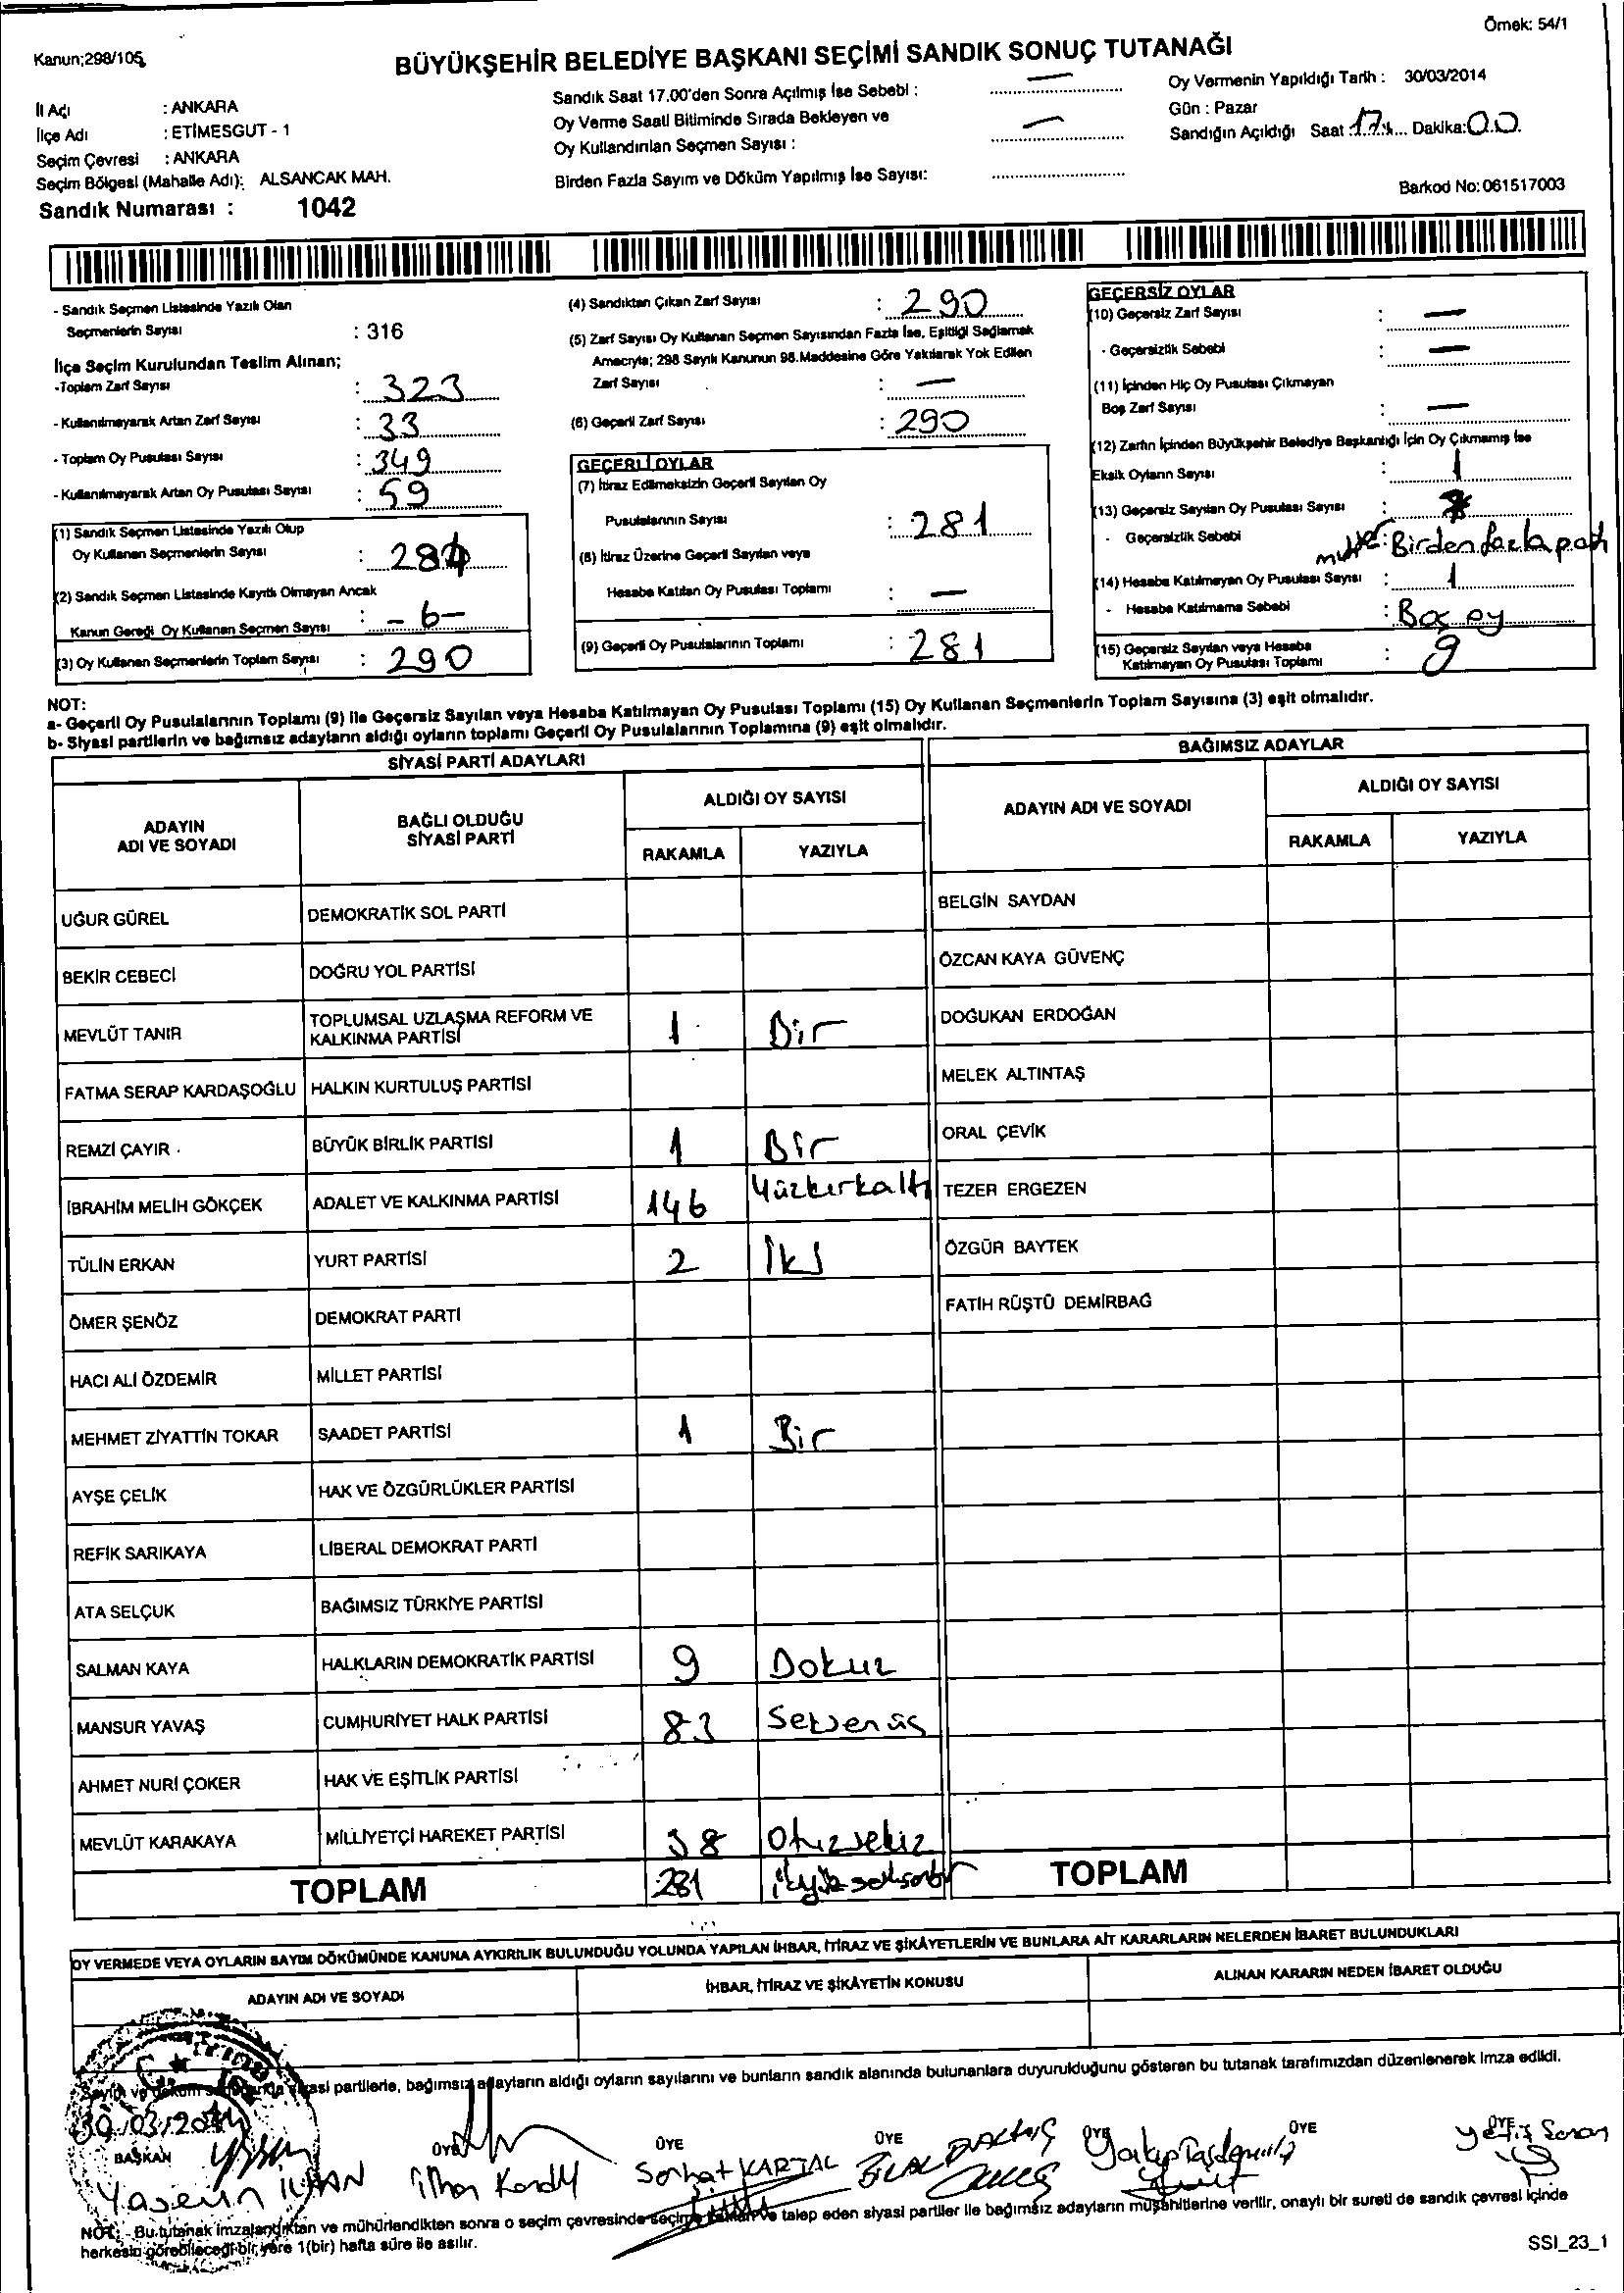 Örnek: 54/1
Kanun;298/105
BÜYÜKŞEHİR BELEDİYE BAŞKANI SEÇİMİ SANDIK SONUÇ TUTANAĞI
İl Adı : ANKARA
İlçe Adı : ETİMESGUT - 1
Seçim Çevresi : ANKARA
Seçim Bölgesi (Mahalle Adı): ALSANCAK MAH.
Sandık Numarası : 1042
Sandık Saat 17.00'den Sonra Açılmış İse Sebebi : —
Oy Verme Saati Bitiminde Sırada Bekleyen ve
Oy Kullandırılan Seçmen Sayısı : —
Birden Fazla Sayım ve Döküm Yapılmış İse Sayısı:
Oy Vermenin Yapıldığı Tarih : 30/03/2014
Gün : Pazar
Sandığın Açıldığı Saat : 17 Dakika: 00
Barkod No: 061517003
- Sandık Seçmen Listesinde Yazılı Olan
Seçmenlerin Sayısı : 316
İlçe Seçim Kurulundan Teslim Alınan;
-Toplam Zarf Sayısı : 323
- Kullanılmayarak Artan Zarf Sayısı : 33
- Toplam Oy Pusulası Sayısı : 349
- Kullanılmayarak Artan Oy Pusulası Sayısı : 59
(1) Sandık Seçmen Listesinde Yazılı Olup
Oy Kullanan Seçmenlerin Sayısı : 284
(2) Sandık Seçmen Listesinde Kayıtlı Olmayan Ancak
Kanun Gereği Oy Kullanan Seçmen Sayısı : -6-
(3) Oy Kullanan Seçmenlerin Toplam Sayısı : 290
(4) Sandıktan Çıkan Zarf Sayısı : 290
(5) Zarf Sayısı Oy Kullanan Seçmen Sayısından Fazla İse, Eşitliği Sağlamak
Amacıyla; 298 Sayılı Kanunun 98.Maddesine Göre Yakılarak Yok Edilen
Zarf Sayısı : —
(6) Geçerli Zarf Sayısı : 290
GEÇERLİ OYLAR
(7) İtiraz Edilmeksizin Geçerli Sayılan Oy
Pusulalarının Sayısı : 281
(8) İtiraz Üzerine Geçerli Sayılan veya
Hesaba Katılan Oy Pusulası Toplamı : —
(9) Geçerli Oy Pusulalarının Toplamı : 281
GEÇERSİZ OYLAR
(10) Geçersiz Zarf Sayısı : —
- Geçersizlik Sebebi : —
(11) İçinden Hiç Oy Pusulası Çıkmayan
Boş Zarf Sayısı : —
(12) Zarfın İçinden Büyükşehir Belediye Başkanlığı İçin Oy Çıkmamış İse
Eksik Oyların Sayısı : 1
(13) Geçersiz Sayılan Oy Pusulası Sayısı :
- Geçersizlik Sebebi : Birden fazla parti
(14) Hesaba Katılmayan Oy Pusulası Sayısı : 1
- Hesaba Katılmama Sebebi : Boş oy
(15) Geçersiz Sayılan veya Hesaba
Katılmayan Oy Pusulası Toplamı : 9
NOT:
a- Geçerli Oy Pusulalarının Toplamı (9) ile Geçersiz Sayılan veya Hesaba Katılmayan Oy Pusulası Toplamı (15) Oy Kullanan Seçmenlerin Toplam Sayısına (3) eşit olmalıdır.
b- Siyasi partilerin ve bağımsız adayların aldığı oyların toplamı Geçerli Oy Pusulalarının Toplamına (9) eşit olmalıdır.
SİYASİ PARTİ ADAYLARI
ADAYIN ADI VE SOYADI BAĞLI OLDUĞU SİYASİ PARTİ ALDIĞI OY SAYISI
RAKAMLA YAZIYLA
UĞUR GÜREL DEMOKRATİK SOL PARTİ
BEKİR CEBECİ DOĞRU YOL PARTİSİ
MEVLÜT TANIR TOPLUMSAL UZLAŞMA REFORM VE KALKINMA PARTİSİ 1 Bir
FATMA SERAP KARDAŞOĞLU HALKIN KURTULUŞ PARTİSİ
REMZİ ÇAYIR BÜYÜK BİRLİK PARTİSİ 1 Bir
İBRAHİM MELİH GÖKÇEK ADALET VE KALKINMA PARTİSİ 146 Yüzkırkaltı
TÜLİN ERKAN YURT PARTİSİ 2 İki
ÖMER ŞENÖZ DEMOKRAT PARTİ
HACI ALİ ÖZDEMİR MİLLET PARTİSİ
MEHMET ZİYATTİN TOKAR SAADET PARTİSİ 1 Bir
AYŞE ÇELİK HAK VE ÖZGÜRLÜKLER PARTİSİ
REFİK SARIKAYA LİBERAL DEMOKRAT PARTİ
ATA SELÇUK BAĞIMSIZ TÜRKİYE PARTİSİ
SALMAN KAYA HALKLARIN DEMOKRATİK PARTİSİ 9 Dokuz
MANSUR YAVAŞ CUMHURİYET HALK PARTİSİ 83 Seksenüç
AHMET NURİ ÇOKER HAK VE EŞİTLİK PARTİSİ
MEVLÜT KARAKAYA MİLLİYETÇİ HAREKET PARTİSİ 38 Otuzsekiz
TOPLAM 281 ikiyüzseksenbir
BAĞIMSIZ ADAYLAR
ADAYIN ADI VE SOYADI ALDIĞI OY SAYISI
RAKAMLA YAZIYLA
BELGİN SAYDAN
ÖZCAN KAYA GÜVENÇ
DOĞUKAN ERDOĞAN
MELEK ALTINTAŞ
ORAL ÇEVİK
TEZER ERGEZEN
ÖZGÜR BAYTEK
FATİH RÜŞTÜ DEMİRBAĞ
TOPLAM
OY VERMEDE VEYA OYLARIN SAYIM DÖKÜMÜNDE KANUNA AYKIRILIK BULUNDUĞU YOLUNDA YAPILAN İHBAR, İTİRAZ VE ŞİKÂYETLERİN VE BUNLARA AİT KARARLARIN NELERDEN İBARET BULUNDUKLARI
ADAYIN ADI VE SOYADI İHBAR, İTİRAZ VE ŞİKÂYETİN KONUSU ALINAN KARARIN NEDEN İBARET OLDUĞU
Sayım ve döküm sonucunda siyasi partilerle, bağımsız adayların aldığı oyların sayılarını ve bunların sandık alanında bulunanlara duyurulduğunu gösteren bu tutanak tarafımızdan düzenlenerek imza edildi.
30/03/2014
BAŞKAN ÜYE ÜYE ÜYE ÜYE ÜYE ÜYE
Yasemin İLHAN İlhan Serhat KARTAL BİLAL Yakup
NOT: - Bu tutanak imzalandıktan ve mühürlendikten sonra o seçim çevresinde seçime katılan ve talep eden siyasi partiler ile bağımsız adayların müşahitlerine verilir, onaylı bir sureti de sandık çevresi içinde
herkesin görebileceği bir yere 1(bir) hafta süre ile asılır.
SSI_23_1